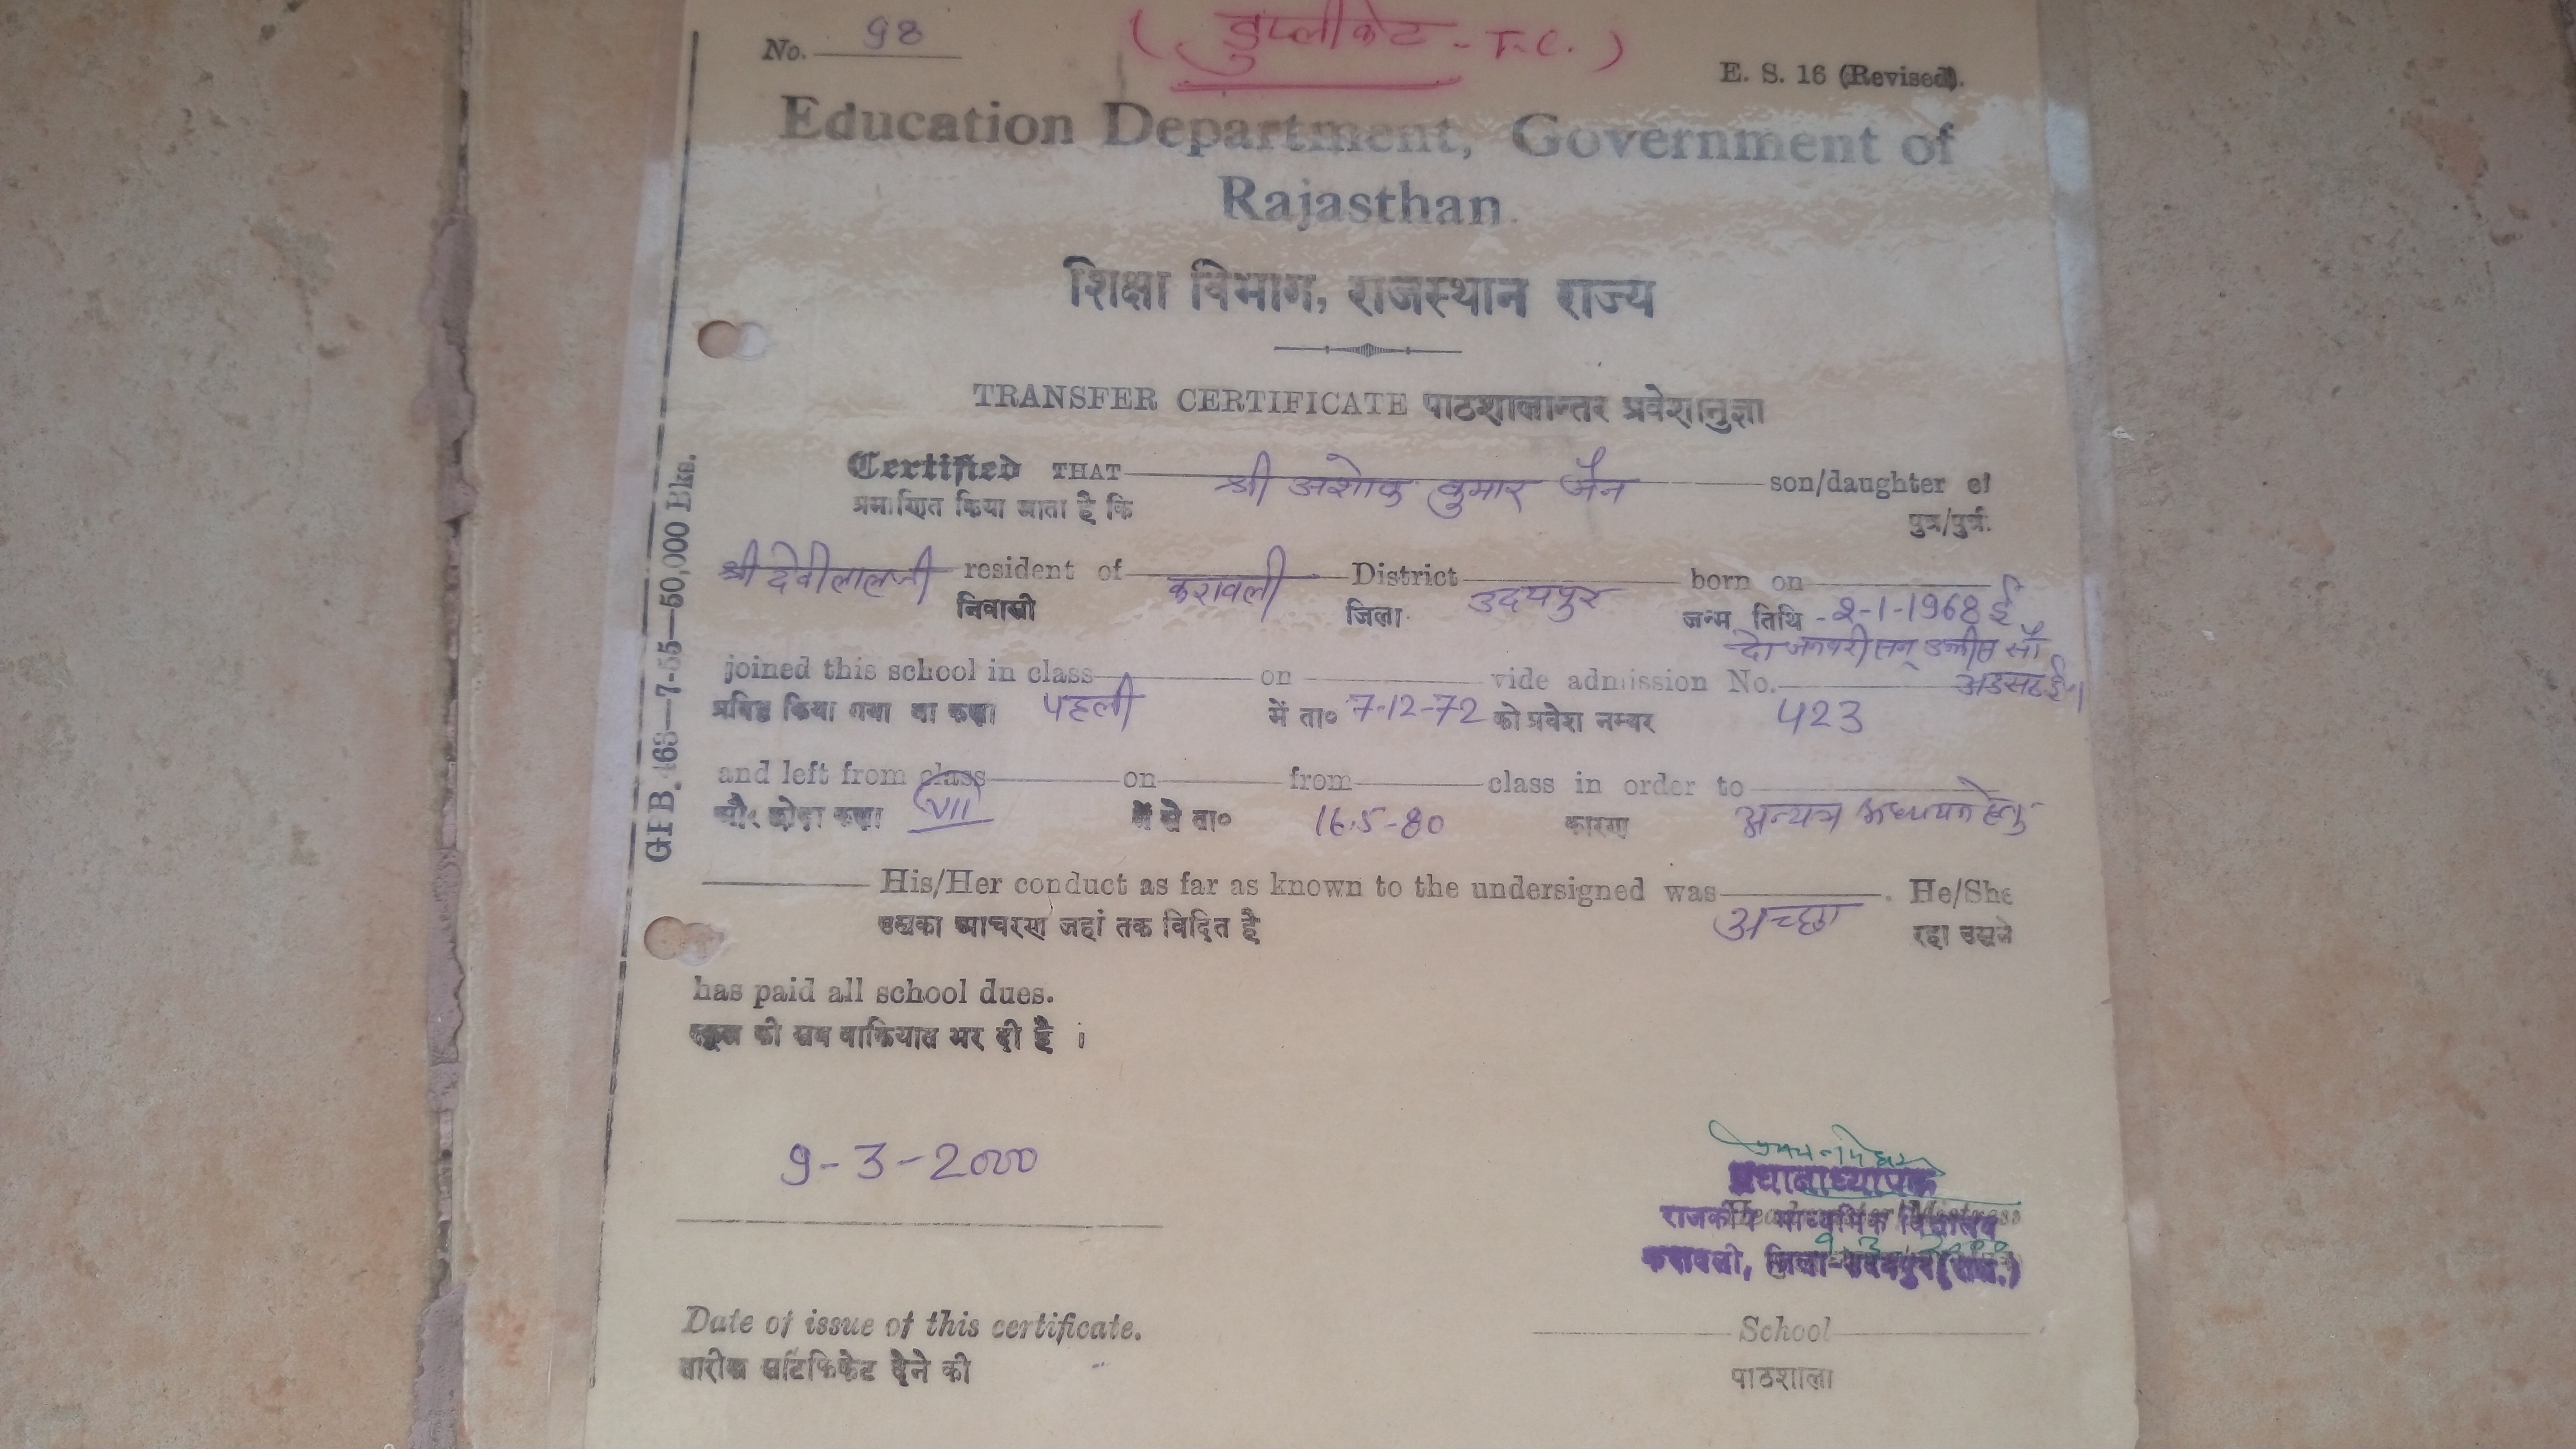 No. 98
( डुप्लीकेट - T.C. )
E. S. 16 (Revised).
Education Department, Government of
Rajasthan.
शिक्षा विभाग, राजस्थान राज्य
TRANSFER CERTIFICATE पाठशालान्तर प्रवेशानुज्ञा
Certified THAT श्री अशोक कुमार जैन son/daughter of
प्रमाणित किया जाता है कि पुत्र/पुत्री
श्री देवीलालजी resident of करावली District उदयपुर born on
निवासी जिला जन्म तिथि - 2-1-1968 ई.
दो जनवरी सन् उन्नीस सौ
joined this school in class on vide admission No. अडसठ ई.।
प्रविष्ठ किया गया था कक्षा पहली में ता० 7-12-72 को प्रवेश नम्बर 423
and left from class on from class in order to
और छोड़ा कक्षा VII में से ता० 16.5-80 कारण अन्यत्र अध्ययन हेतु
His/Her conduct as far as known to the undersigned was अच्छा. He/She
उसका आचरण जहां तक विदित है रहा उसने
has paid all school dues.
स्कूल की सब वाकियात भर दी है ।
9-3-2000
प्रधानाध्यापक
राजकीय माध्यमिक विद्यालय
करावली, जिला-उदयपुर (राज.)
Date of issue of this certificate.
तारीख सर्टिफिकेट देने की
School
पाठशाला
GPB. 468—7-55—50,000 Bks.